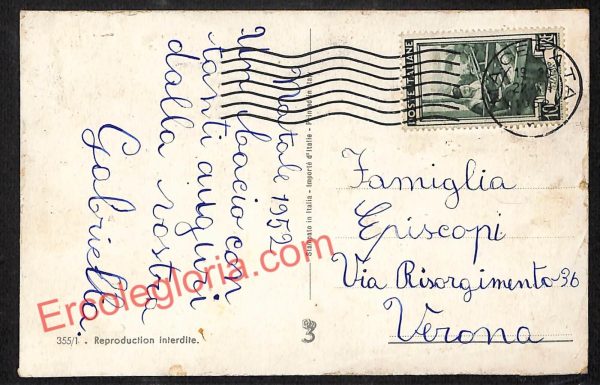 Natale 1952
Un bacio con
tanti auguri
dalla vostra
Gabriella.
Famiglia
Episcopi
Via Risorgimento 36
Verona
POSTE ITALIANE
Stampato in Italia - Importé d'Italie - Printed in Italy
355/1 - Reproduction interdite.
3
Ercolegloria.com